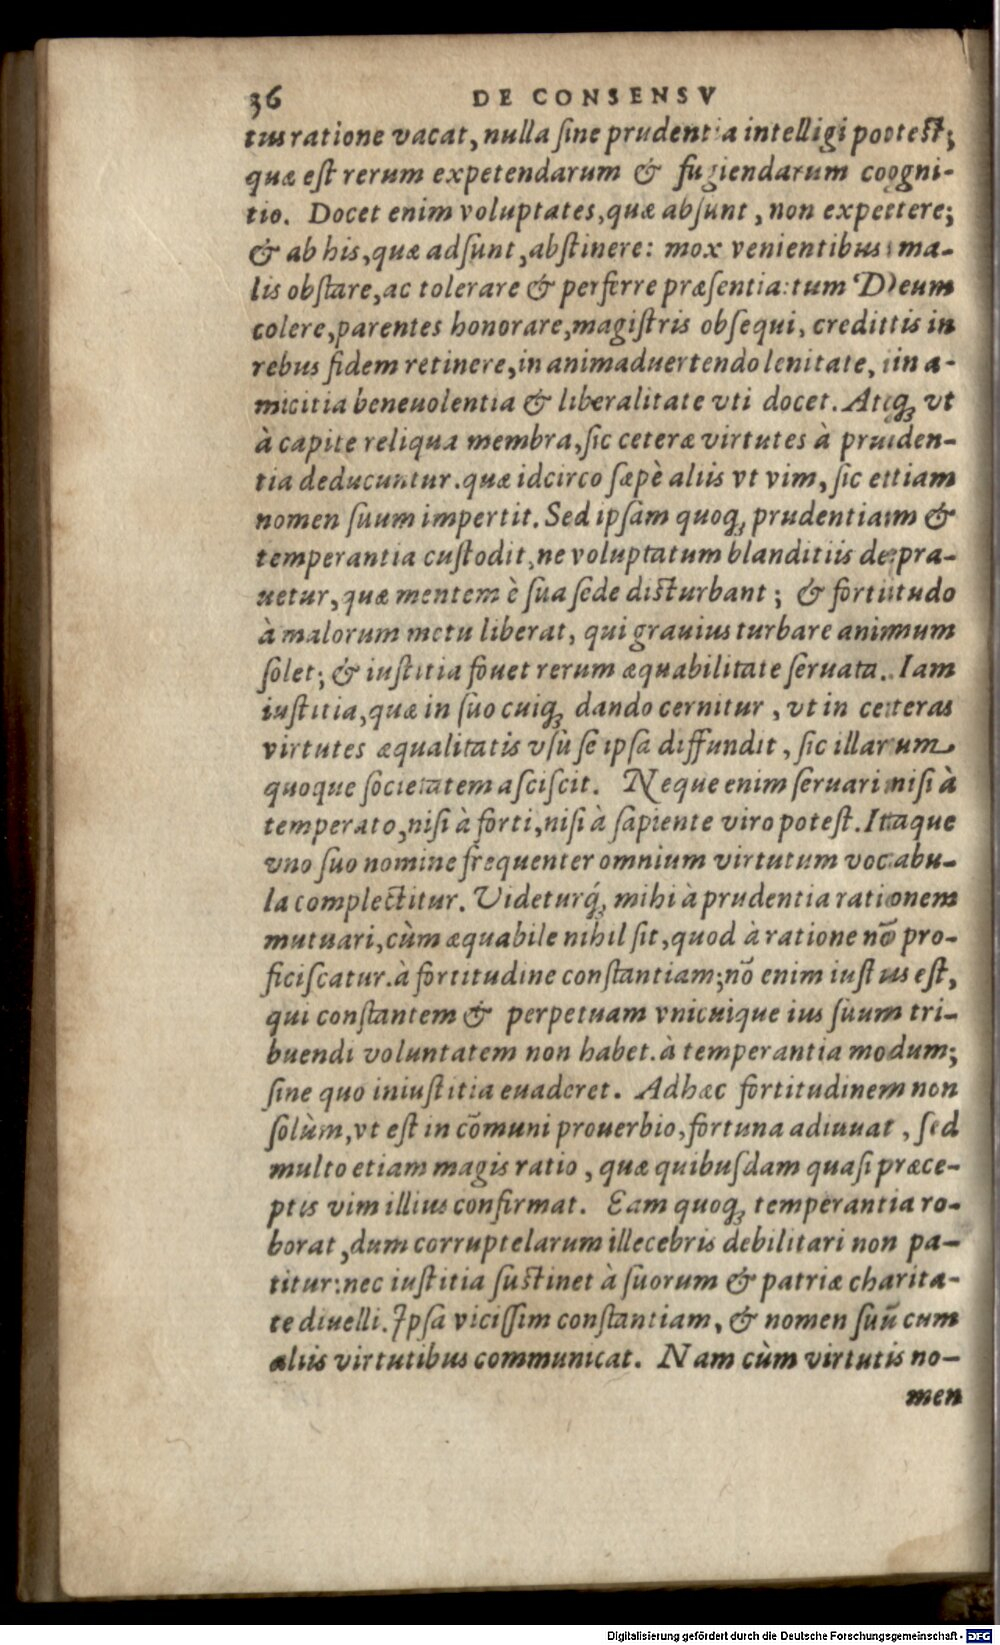 36 DE CONSENSV
tus ratione vacat, nulla sine prudentia intelligi potest;
quæ est rerum expetendarum & fugiendarum cogni-
tio. Docet enim voluptates, quæ absunt, non expetere;
& ab his, quæ adsunt, abstinere: mox venientibus ma-
lis obstare, ac tolerare & perferre præsentia: tum Deum
colere, parentes honorare, magistris obsequi, creditis in
rebus fidem retinere, in animaduertendo lenitate, in a-
micitia beneuolentia & liberalitate vti docet. Atq́ꝫ vt
à capite reliqua membra, sic ceteræ virtutes à pruden-
tia deducuntur. quæ idcirco sæpè aliis vt vim, sic etiam
nomen suum impertit. Sed ipsam quoqꝫ prudentiam &
temperantia custodit, ne voluptatum blanditiis depra-
uetur, quæ mentem è sua sede disturbant; & fortitudo
à malorum metu liberat, qui grauius turbare animum
solet; & iustitia fouet rerum æquabilitate seruata. Iam
iustitia, quæ in suo cuiqꝫ dando cernitur, vt in ceteras
virtutes æqualitatis vsu se ipsa diffundit, sic illarum
quoque societatem asciscit. Neque enim seruari nisi à
temperato, nisi à forti, nisi à sapiente viro potest. Itaque
vno suo nomine frequenter omnium virtutum vocabu-
la complectitur. Videturq́ꝫ mihi à prudentia rationem
mutuari, cùm æquabile nihil sit, quod à ratione nō pro-
ficiscatur. à fortitudine constantiam; nō enim iustus est,
qui constantem & perpetuam vnicuique ius suum tri-
buendi voluntatem non habet. à temperantia modum;
sine quo iniustitia euaderet. Adhæc fortitudinem non
solùm, vt est in cōmuni prouerbio, fortuna adiuuat, sed
multo etiam magis ratio, quæ quibusdam quasi præce-
ptis vim illius confirmat. Eam quoqꝫ temperantia ro-
borat, dum corruptelarum illecebris debilitari non pa-
titur: nec iustitia sustinet à suorum & patriæ charita-
te diuelli. Ipsa vicissim constantiam, & nomen suū cum
aliis virtutibus communicat. Nam cùm virtutis no-
men
Digitalisierung gefördert durch die Deutsche Forschungsgemeinschaft - DFG